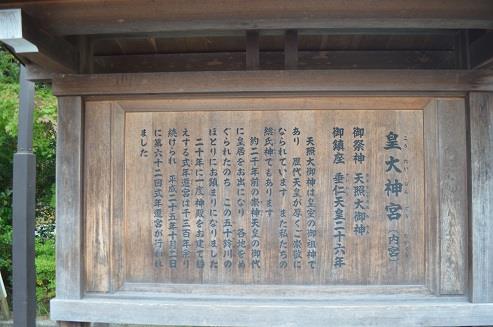 皇大神宮(内宮)
御祭神 天照大御神
御鎮座 垂仁天皇二十六年
天照大御神は皇室の御祖神で
あり 歴代天皇が厚くご崇敬に
なられています また私たちの
総氏神でもあります
約二千年前の崇神天皇の御代
に皇居をお出になり 各地をめ
ぐられたのち この五十鈴川の
ほとりにお鎮まりになりました
二十年に一度 神殿をお建て替
えする式年遷宮は千三百年余り
続けられ 平成二十五年十月二日
に第六十二回式年遷宮が行われ
ました